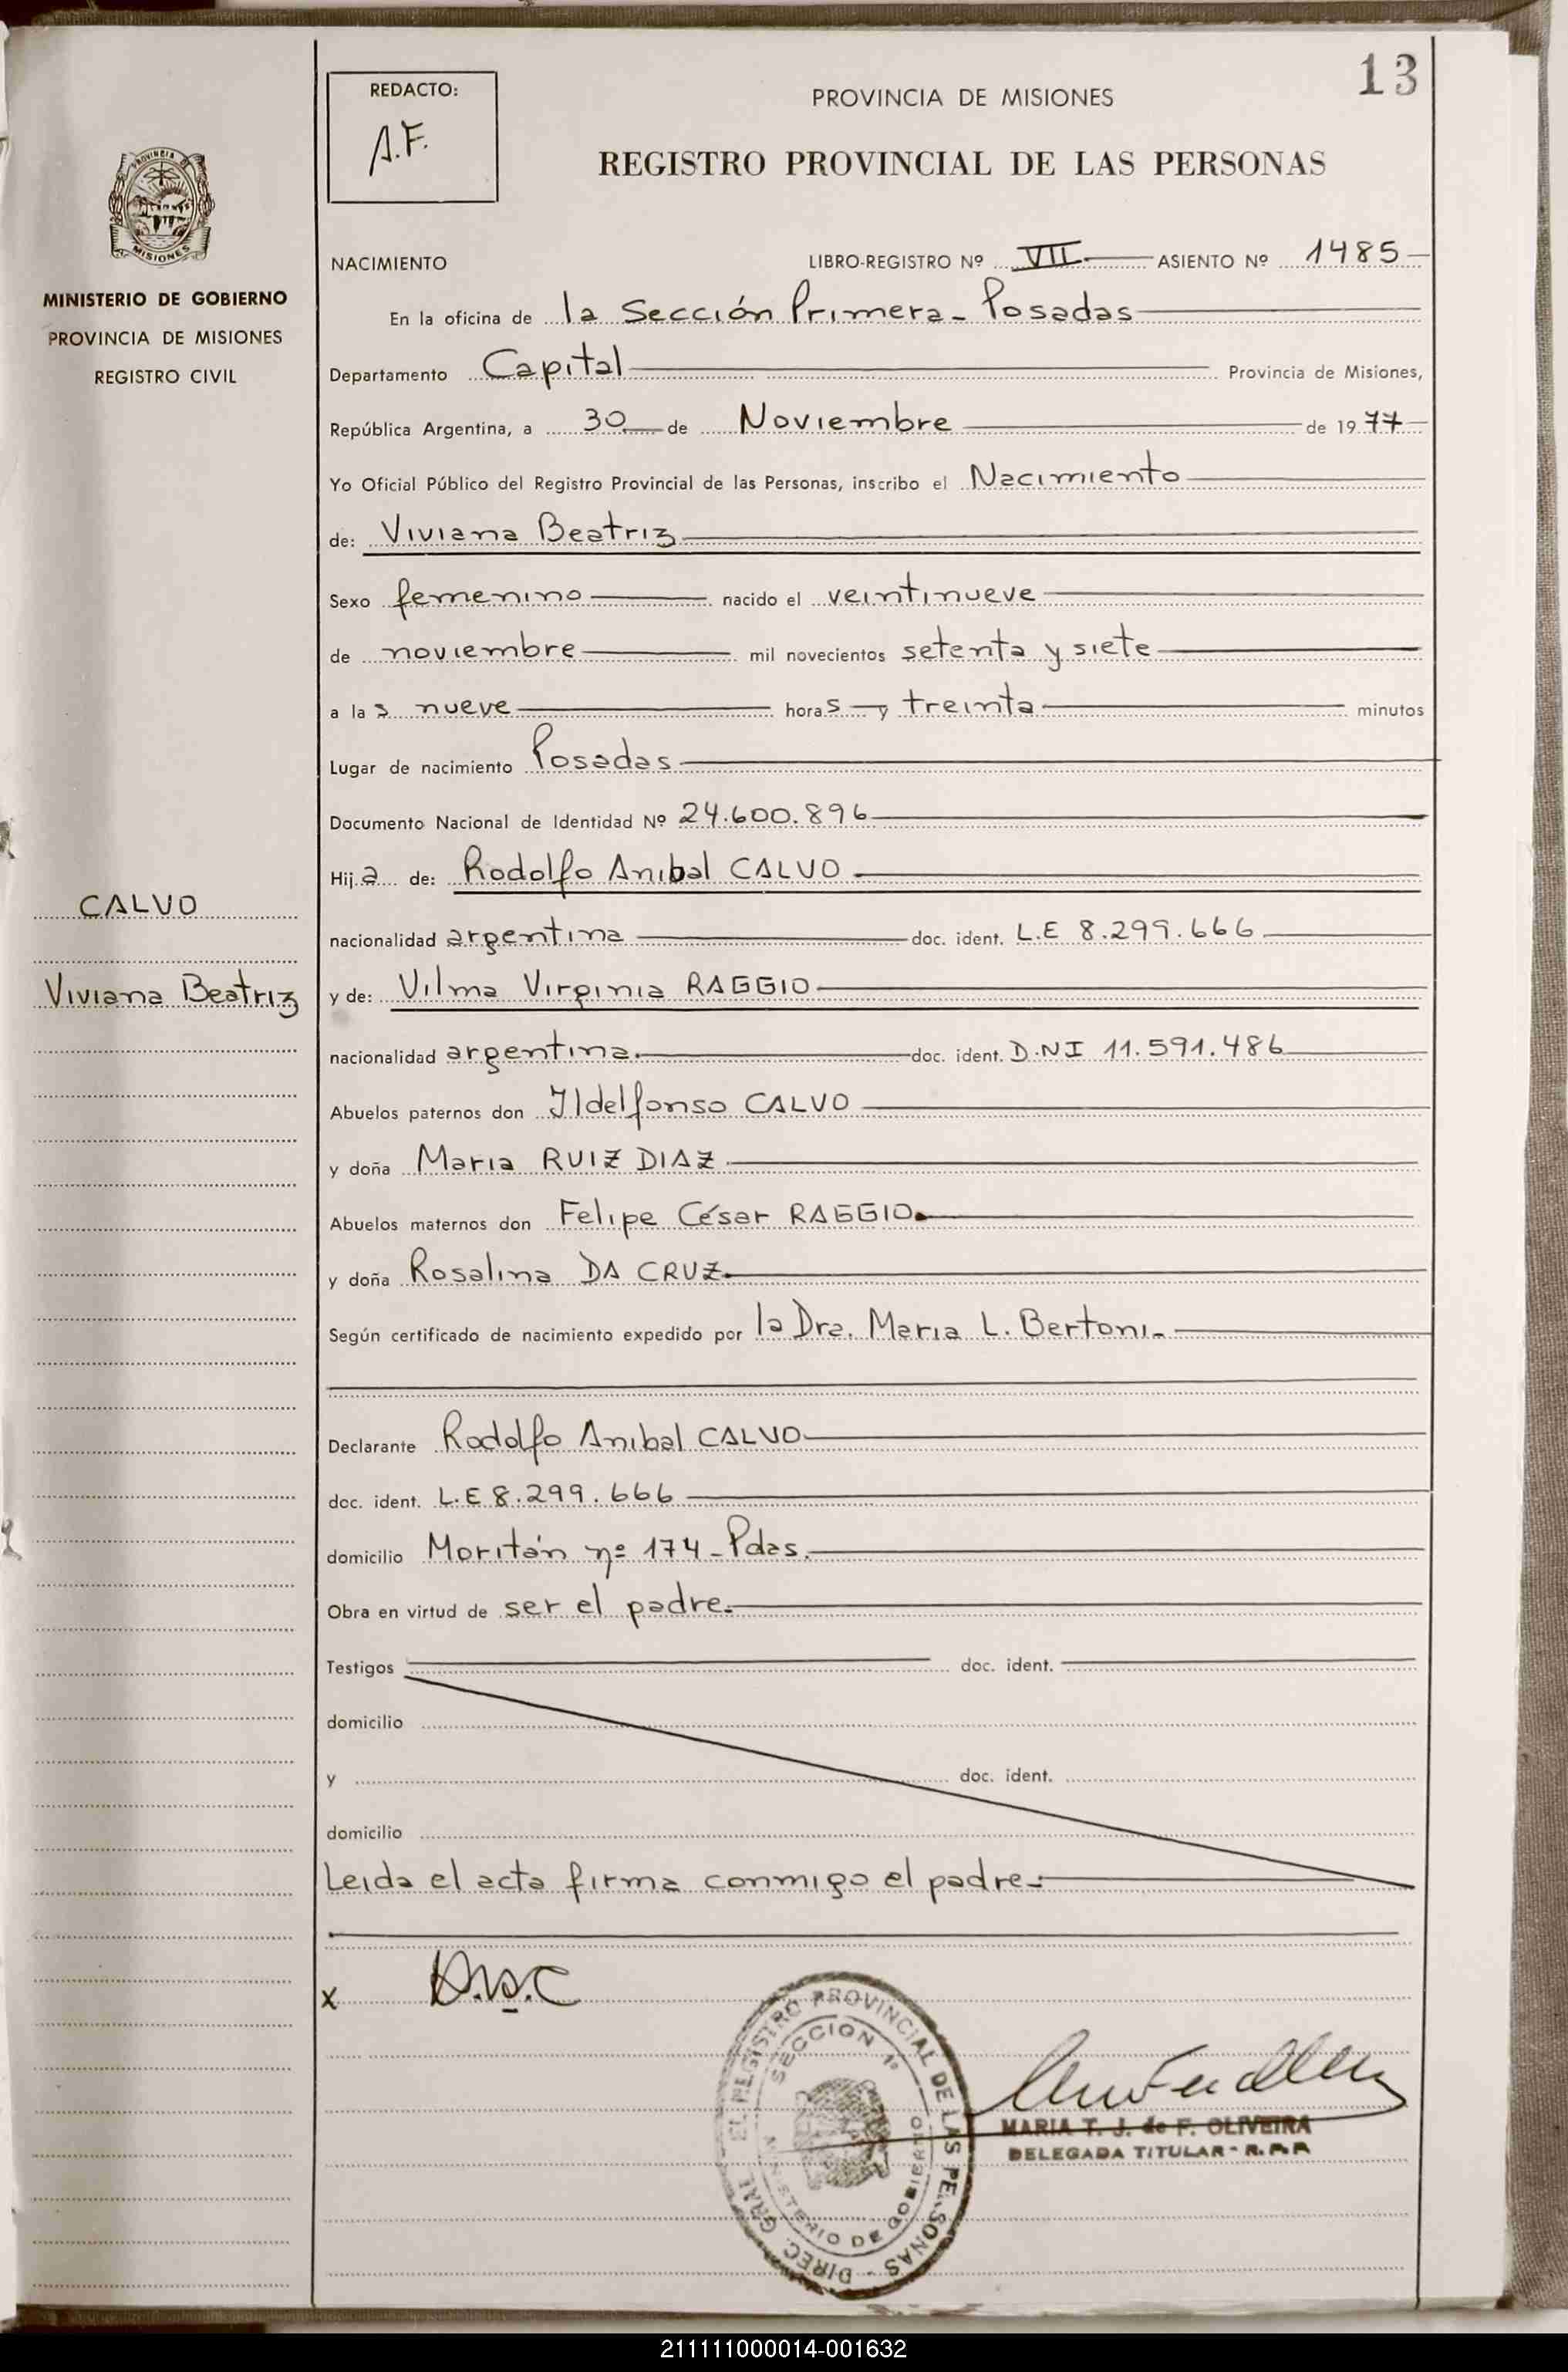 13
REDACTO:
A.F.
PROVINCIA DE MISIONES
REGISTRO PROVINCIAL DE LAS PERSONAS
PROVINCIA DE
MISIONES
MINISTERIO DE GOBIERNO
PROVINCIA DE MISIONES
REGISTRO CIVIL
NACIMIENTO LIBRO-REGISTRO Nº VII ASIENTO Nº 1485
En la oficina de la Sección Primera - Posadas
Departamento Capital Provincia de Misiones,
República Argentina, a 30 de Noviembre de 1977
Yo Oficial Público del Registro Provincial de las Personas, inscribo el Nacimiento
de: Viviana Beatriz
Sexo femenino nacido el veintinueve
de noviembre mil novecientos setenta y siete
a las nueve horas y treinta minutos
Lugar de nacimiento Posadas
Documento Nacional de Identidad Nº 24.600.896
Hija de: Rodolfo Anibal CALVO
CALVO
nacionalidad argentina doc. ident. L.E 8.299.666
Viviana Beatriz
y de: Vilma Virginia RAGGIO
nacionalidad argentina. doc. ident. D.NI 11.591.486
Abuelos paternos don Ildelfonso CALVO
y doña Maria RUIZ DIAZ
Abuelos maternos don Felipe César RAGGIO.
y doña Rosalina DA CRUZ.
Según certificado de nacimiento expedido por la Dra. Maria L. Bertoni.-
Declarante Rodolfo Anibal CALVO
doc. ident. L.E 8.299.666
domicilio Moritán nº 174 - Pdas.
Obra en virtud de ser el padre.
Testigos doc. ident.
domicilio
y doc. ident.
domicilio
Leida el acta firma conmigo el padre.-
x
DIREC. GRAL. EL REGISTRO PROVINCIAL DE LAS PERSONAS
SECCION 1º
MINISTERIO DE GOBIERNO
MARIA T. J. de F. OLIVEIRA
DELEGADA TITULAR - R.P.P
211111000014-001632